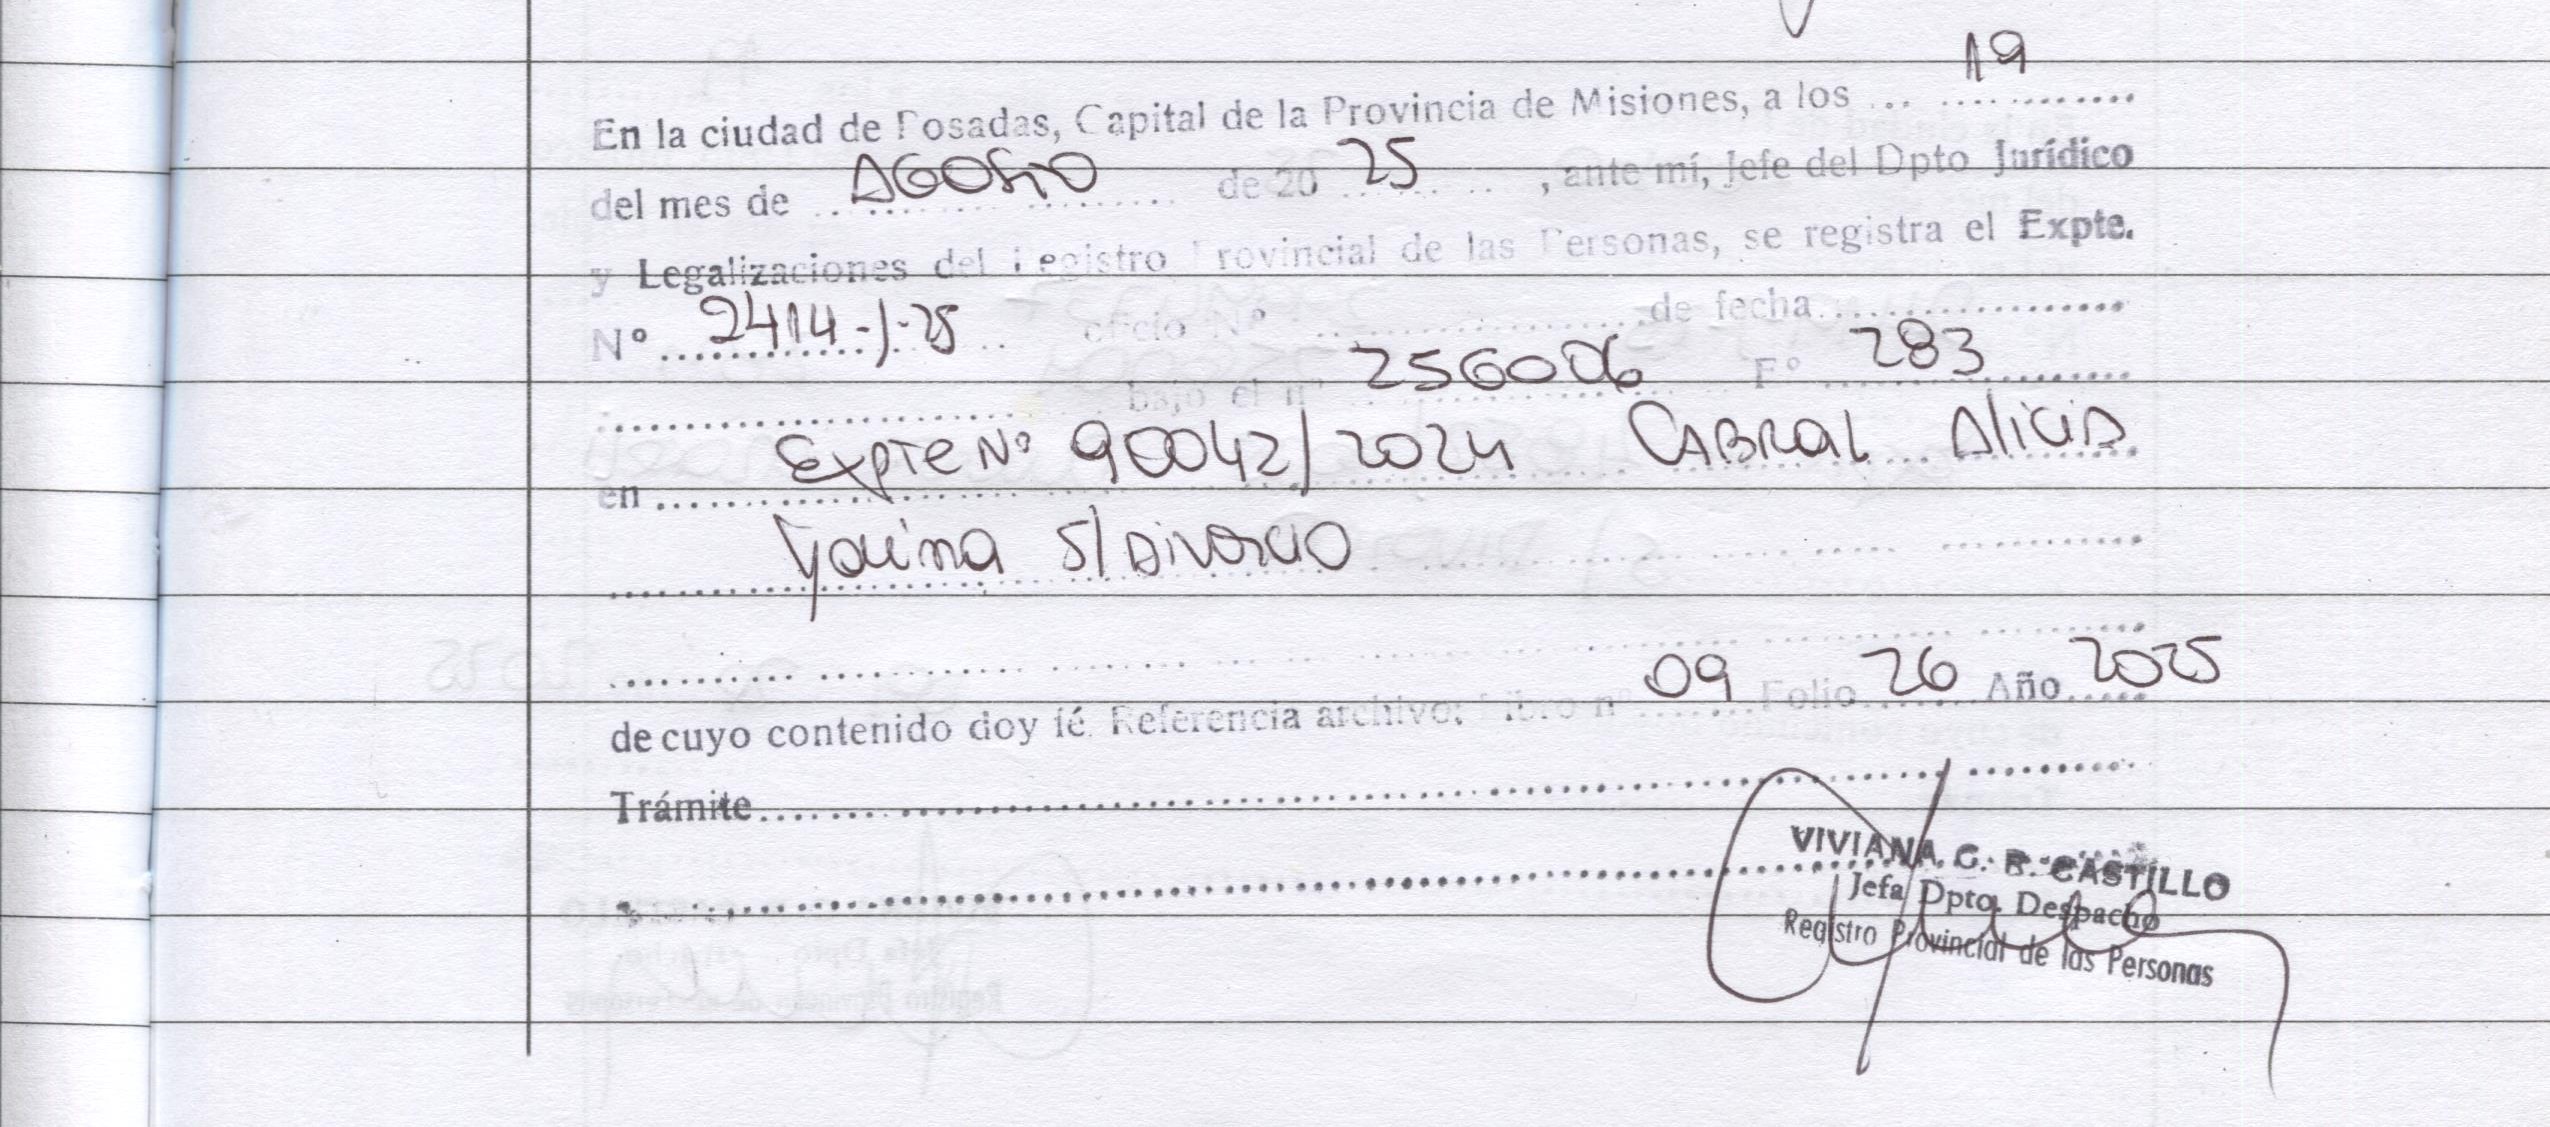 19
En la ciudad de Posadas, Capital de la Provincia de Misiones, a los ... ............
del mes de ... AGOSTO ........ de 20 25 ......, ante mí, Jefe del Dpto Jurídico
y Legalizaciones del Registro Provincial de las Personas, se registra el Expte.
N° 2414-J-25 oficio N° .................... de fecha ....................
.............................. bajo el n° 256006 F° 283
en Expte N° 90042/2024 CABRAL Alicia
s/ Divorcio
de cuyo contenido doy fé. Referencia archivo: Libro n° 09 Folio 26 Año 2025
Trámite ..............................
VIVIANA C. R. CASTILLO
Jefa Dpto. Despacho
Registro Provincial de las Personas